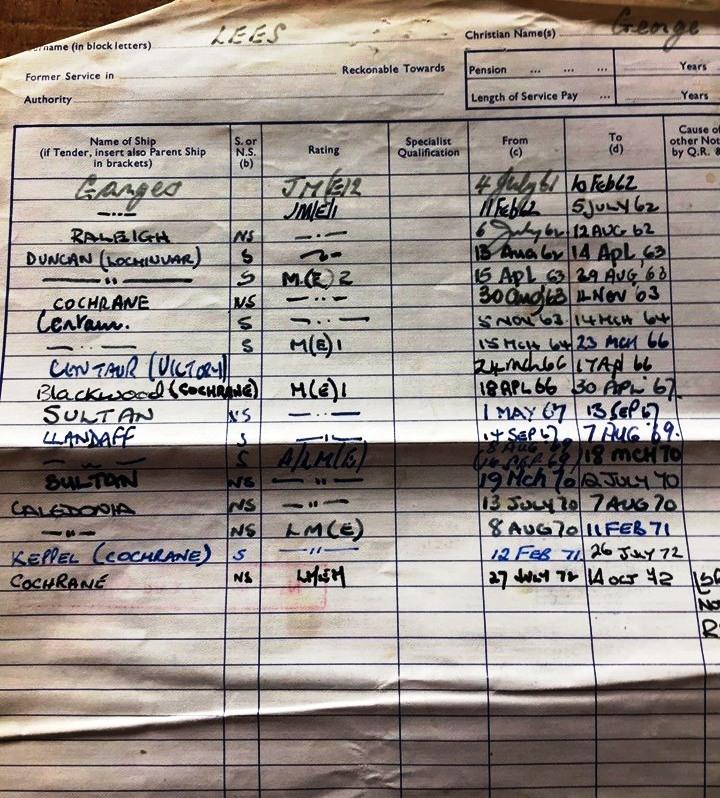 name (in block letters) LEES Christian Name(s) George
Former Service in Reckonable Towards Pension ... ... ... Years
Authority Length of Service Pay ... Years
Name of Ship (if Tender, insert also Parent Ship in brackets) S. or N.S. (b) Rating Specialist Qualification From (c) To (d) Cause of other Not by Q.R. &
Ganges JM(E)2 4 July 61 10 Feb 62
—..— JM(E)1 11 Feb 62 5 JULY 62
RALEIGH NS —..— 6 July 62 12 AUG 62
DUNCAN (LOCHINVAR) S —"— 13 Aug 62 14 APL 63
—"— S M.(E) 2 15 APL 63 29 AUG 63
COCHRANE NS —..— 30 Aug 63 4 NOV 63
Centaur. S —..— 5 NOV 63 14 MCH 64
—..— S M(E)1 15 MCH 64 23 MCH 66
CENTAUR (VICTORY) 24 Mch 66 17 Ap 66
Blackwood (COCHRANE) M(E)1 18 APL 66 30 APL 67
SULTAN NS —..— 1 MAY 67 13 SEP 67
LLANDAFF S —"— 14 SEP 67 7 AUG 69.
—"— S A/LM(E) 8 AUG 69 18 MCH 70
SULTAN NS —"— 19 Mch 70 12 JULY 70
CALEDONIA NS —"— 13 JULY 70 7 AUG 70
—"— NS LM(E) 8 AUG 70 11 FEB 71
KEPPEL (COCHRANE) S —"— 12 FEB 71 26 JULY 72
COCHRANE NS LMEM 27 JULY 72 14 OCT 72